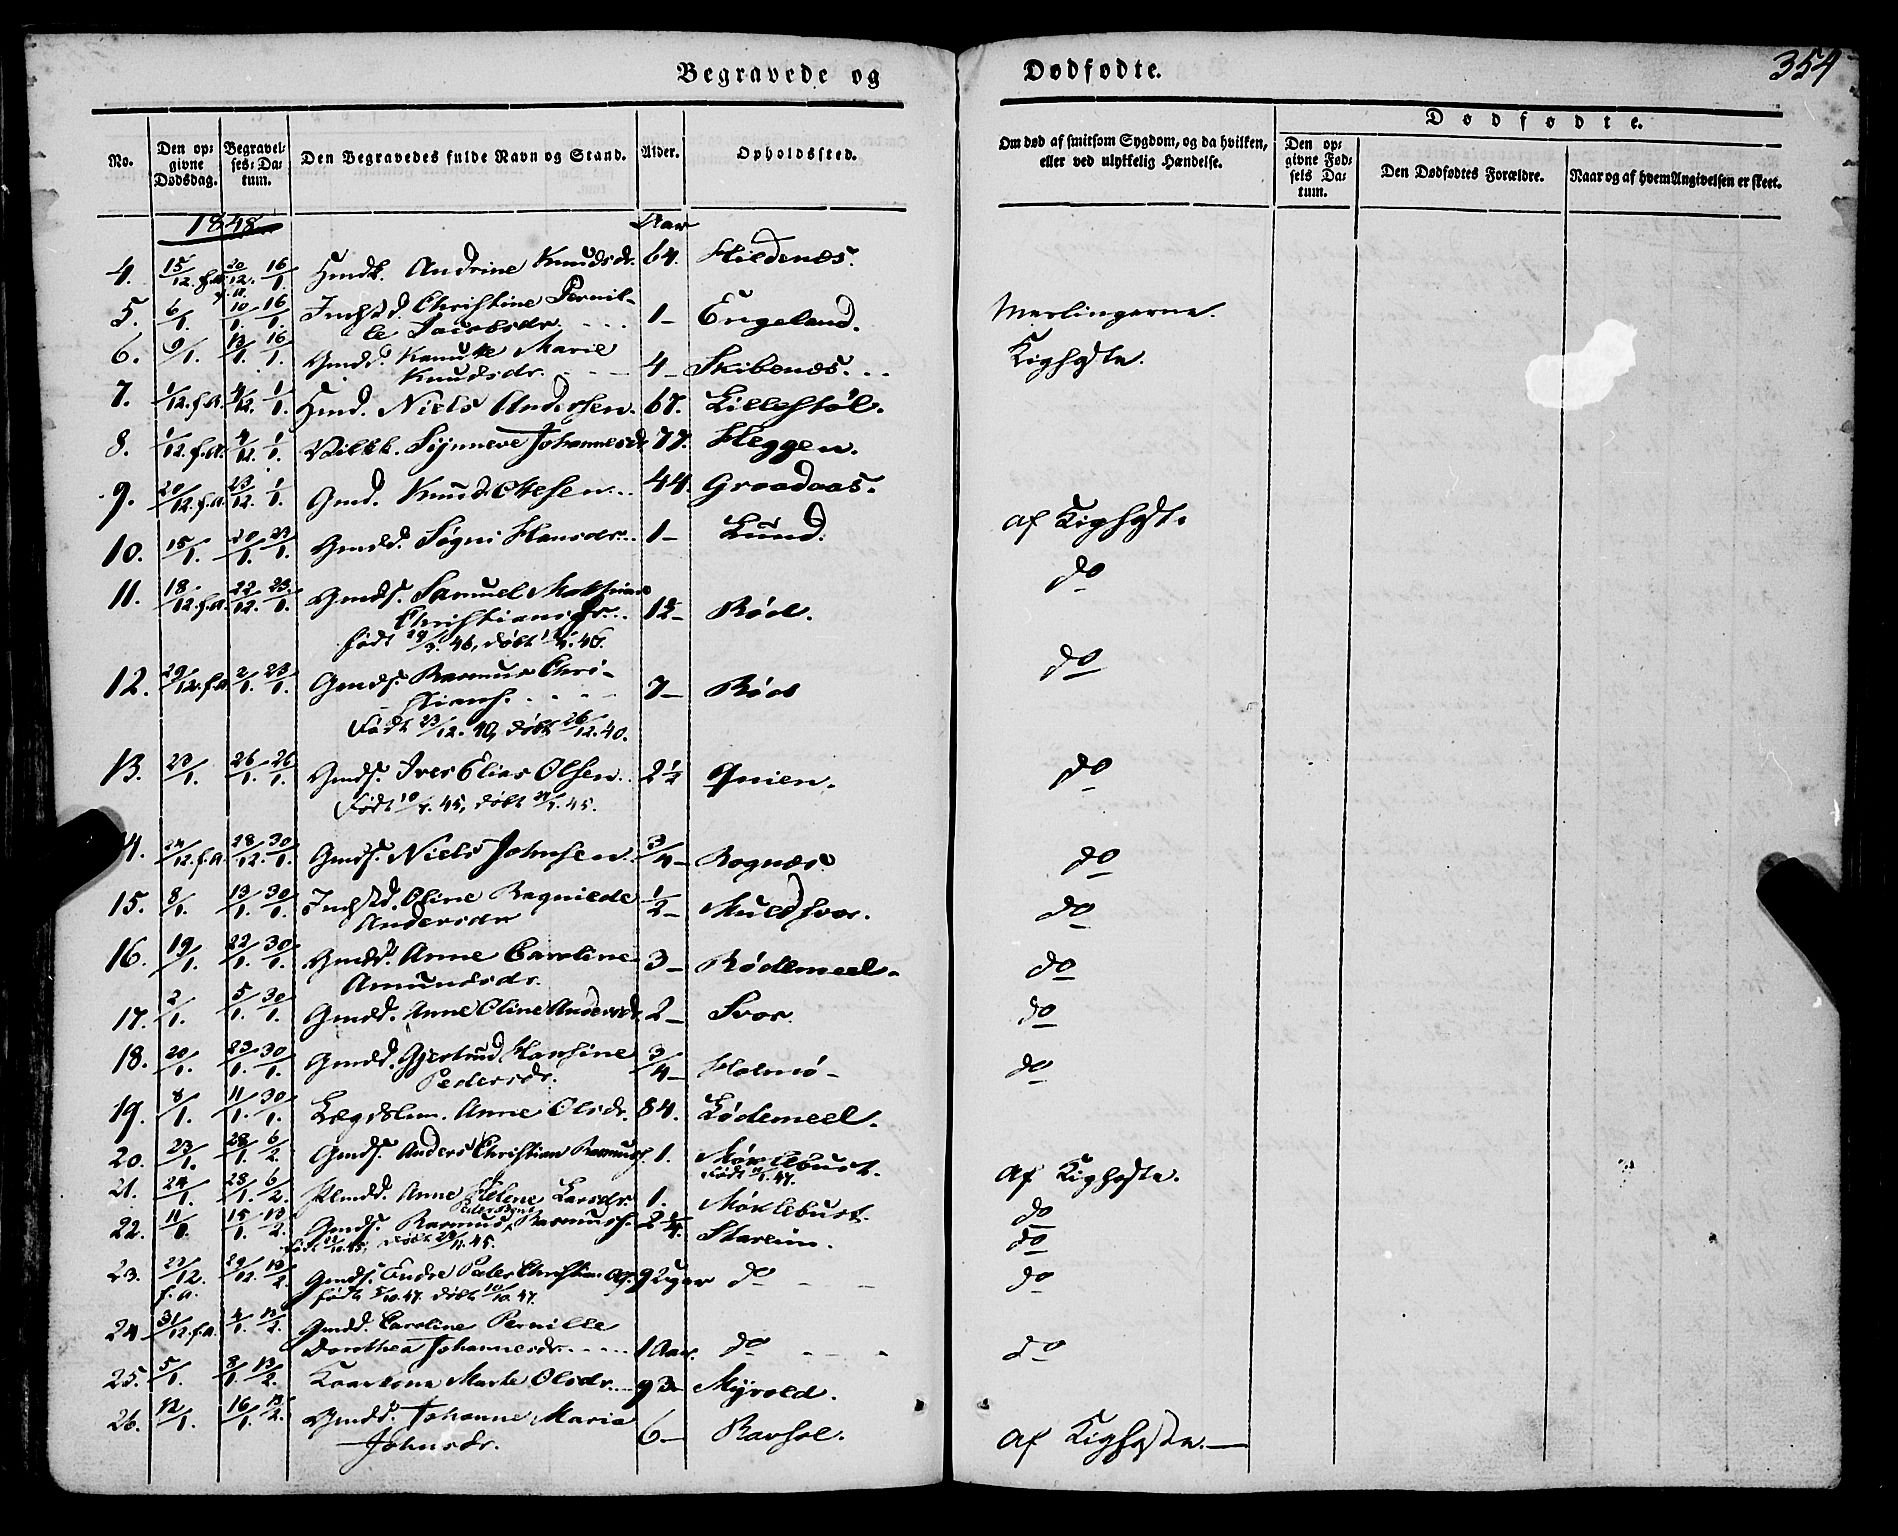 354
Begravede og Dødfødte.
No. Den opgivne Dødsdag. Begravelses-Datum. Den Begravedes fulde Navn og Stand. Alder. Opholdssted. Om død af smitsom Sygdom, og da hvilken, eller ved ulykkelig Hændelse. Dødfødte. Den opgivne Fødsels Datum. Den Dødfødtes Forældre. Naar og af hvem Angivelsen er skeet.
1848 Aar
4. 15/12. f.A. 20/12. 16/1. Hmdk. Andrine Knudsdr. 64. Hildenes.
5. 6/1. 10/1. 16/1. Indstd. Christine Pernil-
le Jacobsdr. 1 – Engeland.
6. 9/1. 13/1. 16/1. Gmdd. Marie
Knudsdr. 4 – Skibenes. Kighoste.
7. 1/12. f.A. 4/12. 1/1. Hmd. Niels Andersen. 67. Lillestøl.
8. 1/12. f.A. 4/12. 1/1. Synneve Johannesdr. 77. Heggen.
9. 20/12. f.A. 23/12. 1/1. Gmd. Knud Olesen. 44. Graadaas.
10. 15/1. 20/1. 23/1. Gmdd. Søgni Hansdr. 1 – Lund. af Kighoste.
11. 18/12. f.A. 22/12. 23/1. Gmds. Samuel
Christians. 1½ – Rød. do
12. 29/12. f.A. 2/1. 23/1. Gmds. Rasmus Chri-
stians. 7 – Rød do
Født 23/12. 40, døbt 26/12. 40.
13. 23/1. 26/1. 26/1. Gmds. Iver Elias Olsen. 2½ Qvien. do
Født 45, døbt 45.
14. 24/12. f.A. 28/12. 30/1. Gmds. Niels Johnsen. 3/4 – Rognes. do
15. 8/1. 13/1. 30/1. Indstd. Oline Ragnilde
Andersdr 1/2 – Muldsvor. do
16. 19/1. 22/1. 30/1. Gmdd. Anne Caroline
Amundsdr. 3 – Rødemeel. do
17. 2/1. 5/1. 30/1. Gmdd. Anne Oline Andersdr. 2 – Svor. do
18. 20/1. 23/1. 30/1. Gmdd. Gjertrud Hansine
Pedersdr. 3/4 – Holmø – do
19. 8/1. 11/1. 30/1. Lægdslem. Anne Olsdr. 84. Lødemeel.
20. 23/1. 28/1. 6/2. Gmds. Anders Christian Rasmuss. 1. Møklebust.
Af Kighoste.
21. 24/1. 28/1. 6/2. Anne Helene Larsdr. 1. Møklebust. do
22. 11/1. 15/1. 13/2. Gmds. Rasmus Rasmuss. 2¼ Stareim. do
23. 27/12. f.a. 29/12. 13/2. Gmds. Endre Peder Christian 9 Uger do do
24. 31/12. f.A. 4/1. 13/2. Gmdd. Caroline Pernille
Dorothea Johannesdr. 1 Aar. do do
25. 5/1. 8/1. 13/2. Kaarkone Marte Olsdr. 93 – Myrold.
26. 12/1. 16/1. 13/2. Gmdd. Johanne Maria
Johnsdr. 6 – Ravsol. Af Kighoste.